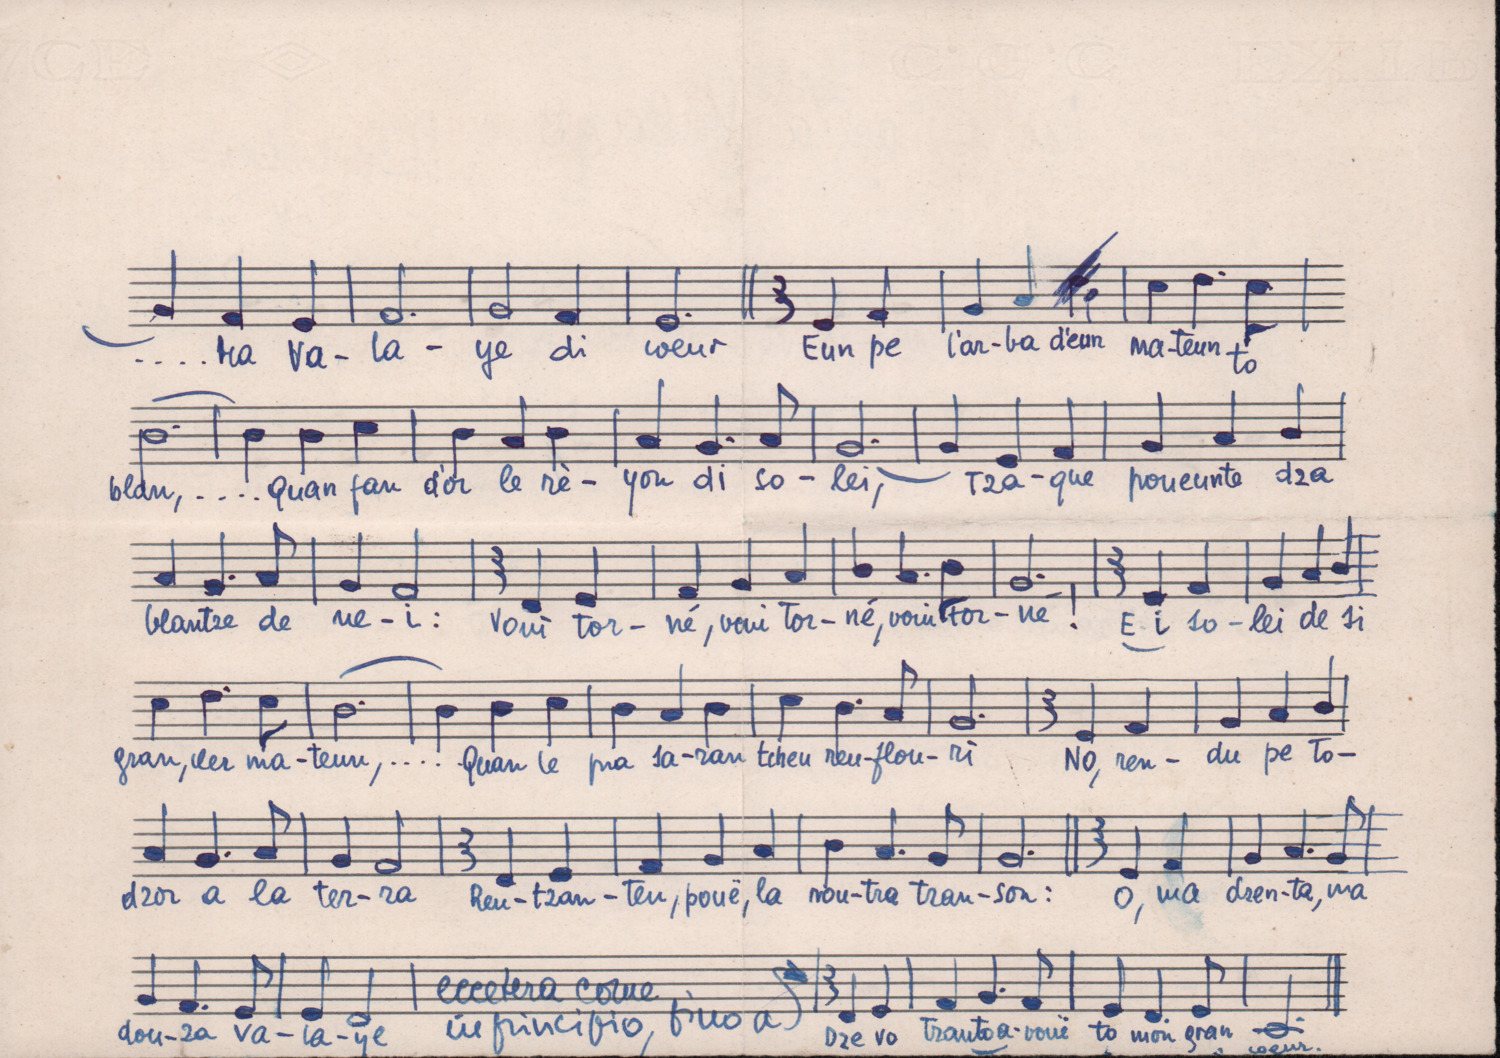 ....Ma Va-la-ye di coeur Eun pe l'ar-ba d'eun ma-teun to
blan,....quan fan d'or le rè-yon di so-lei, Tza-que poueunte dza
blantze de ne-i: Voui tor-né, voui tor-né, voui tor-né! E i so-lei de si
gran, cler ma-teun,....Quan le pra sa-ran tcheu reu-flou-ri NO, ren-du pe to-
dzor a la ter-ra Reu-tzan-ten, pouë, la nou-tra tzan-son: O, ma dzen-ta, ma
dou-za va-la-ye eccetera come
in principio, fino a)
Dze vo tzanto a-vouë to mon gran coeur.